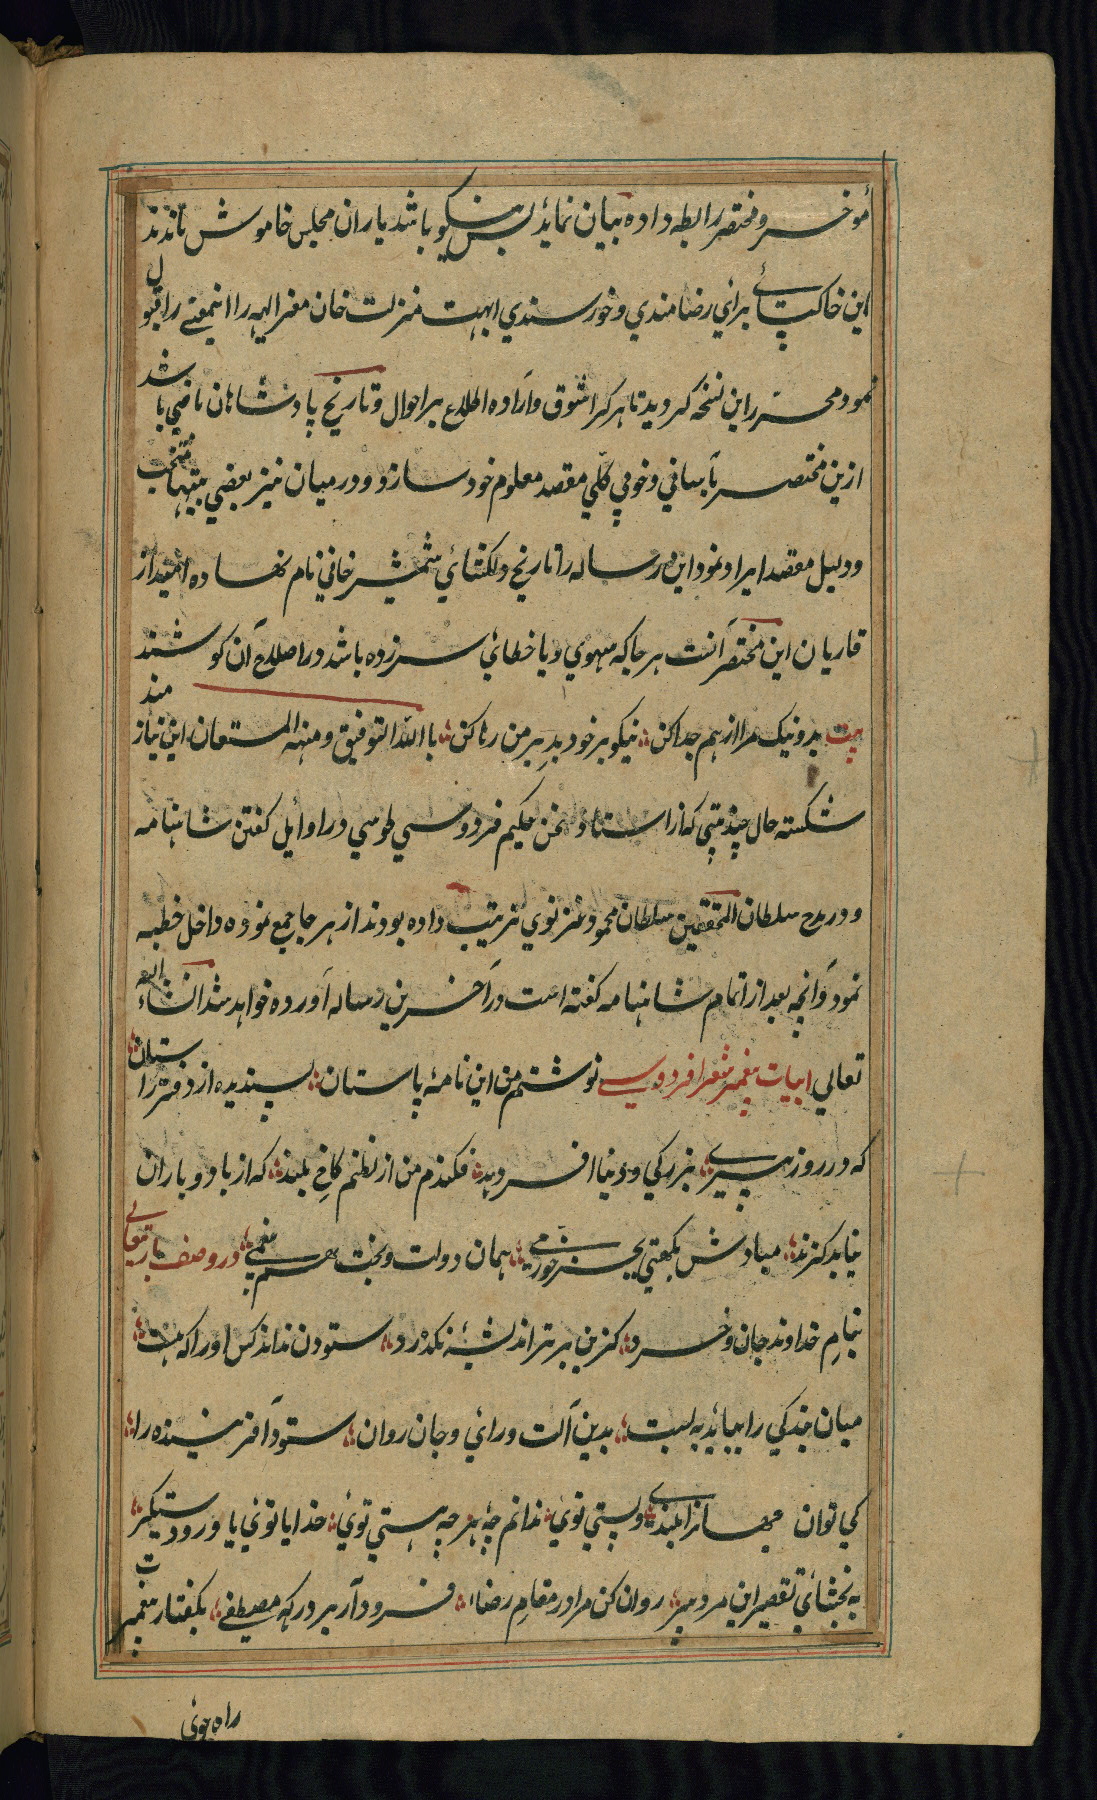 مؤخر و مختصر رابطه داده بیان نماید بس نیکو باشد یاران مجلس خاموش ماندند
این خاکپائے برای رضامندی و خورسندی ابهت منزلت خان مغز الیه را اینمعنے را قبول
نمود محرر این نسخه کردید تا هر کرا شوق و اراده اطلاع بر احوال و تاریخ پادشاهان ماضی باشد
ازین مختصر بآسانی و خوبی کلی مقصد معلوم خود سازد و درمیان نیز بعضی بیتها منتخب
و دلیل مقصد ایراد نمود این رساله را تاریخ دلکشای شمشیر خانی نام نهاده امید از
قاریان این مختصر آنست هر جا که سهوی و یا خطائ سر زده باشد در اصلاح آن کوشند
بیت بد و نیک مرا از هم جدا کن نیکو بر خود بد بر من رها کن باالله التوفیق و منه المستعان این نیازمند
شکسته حال چند بیتی که از استاد سخن حکیم فردوسی طوسی در اوایل کفتن شاهنامه
و در مدح سلطان المحققین سلطان محمود غزنوی ترتیب داده بودند از هر جا جمع نموده داخل خطبه
نمود و آنچه بعد از اتمام شاهنامه کفته است در آخر این رساله آورده خواهد شد انشاء الله
تعالی ابیات پیغمبر شعرا فردوسے نوشتم من این نامهٔ پاستان پسندیده از دفتر راستان
که در روز پیرے بزرکی و دینا افسر دهد فکندم من از نظم کاخ بلند که از باد و باران
نیابد کزند مبادش بکیتی بجز خورمے همان دولت و بخت هم بیغمے در وصف باریتعالی
بنام خداوند جان و خرد کزین برتر اندیشه نکذرد ستودن نداند کس او را که هست
میان بندکی را ببایدبه بست بدین آلت و رائ و جان روان ستود آفریننده را
کی توان جهانرا بلندے و پستی توئ ندانم چۀ هر چه هستی توئ خدایا توئ یاور و دستکیر
به بخشای تقصیر این مرد پیر روان کن مرا در مقام رضا فرود آر بر درکه مصطفے بکفتار پیغمبرت
راه جوئ